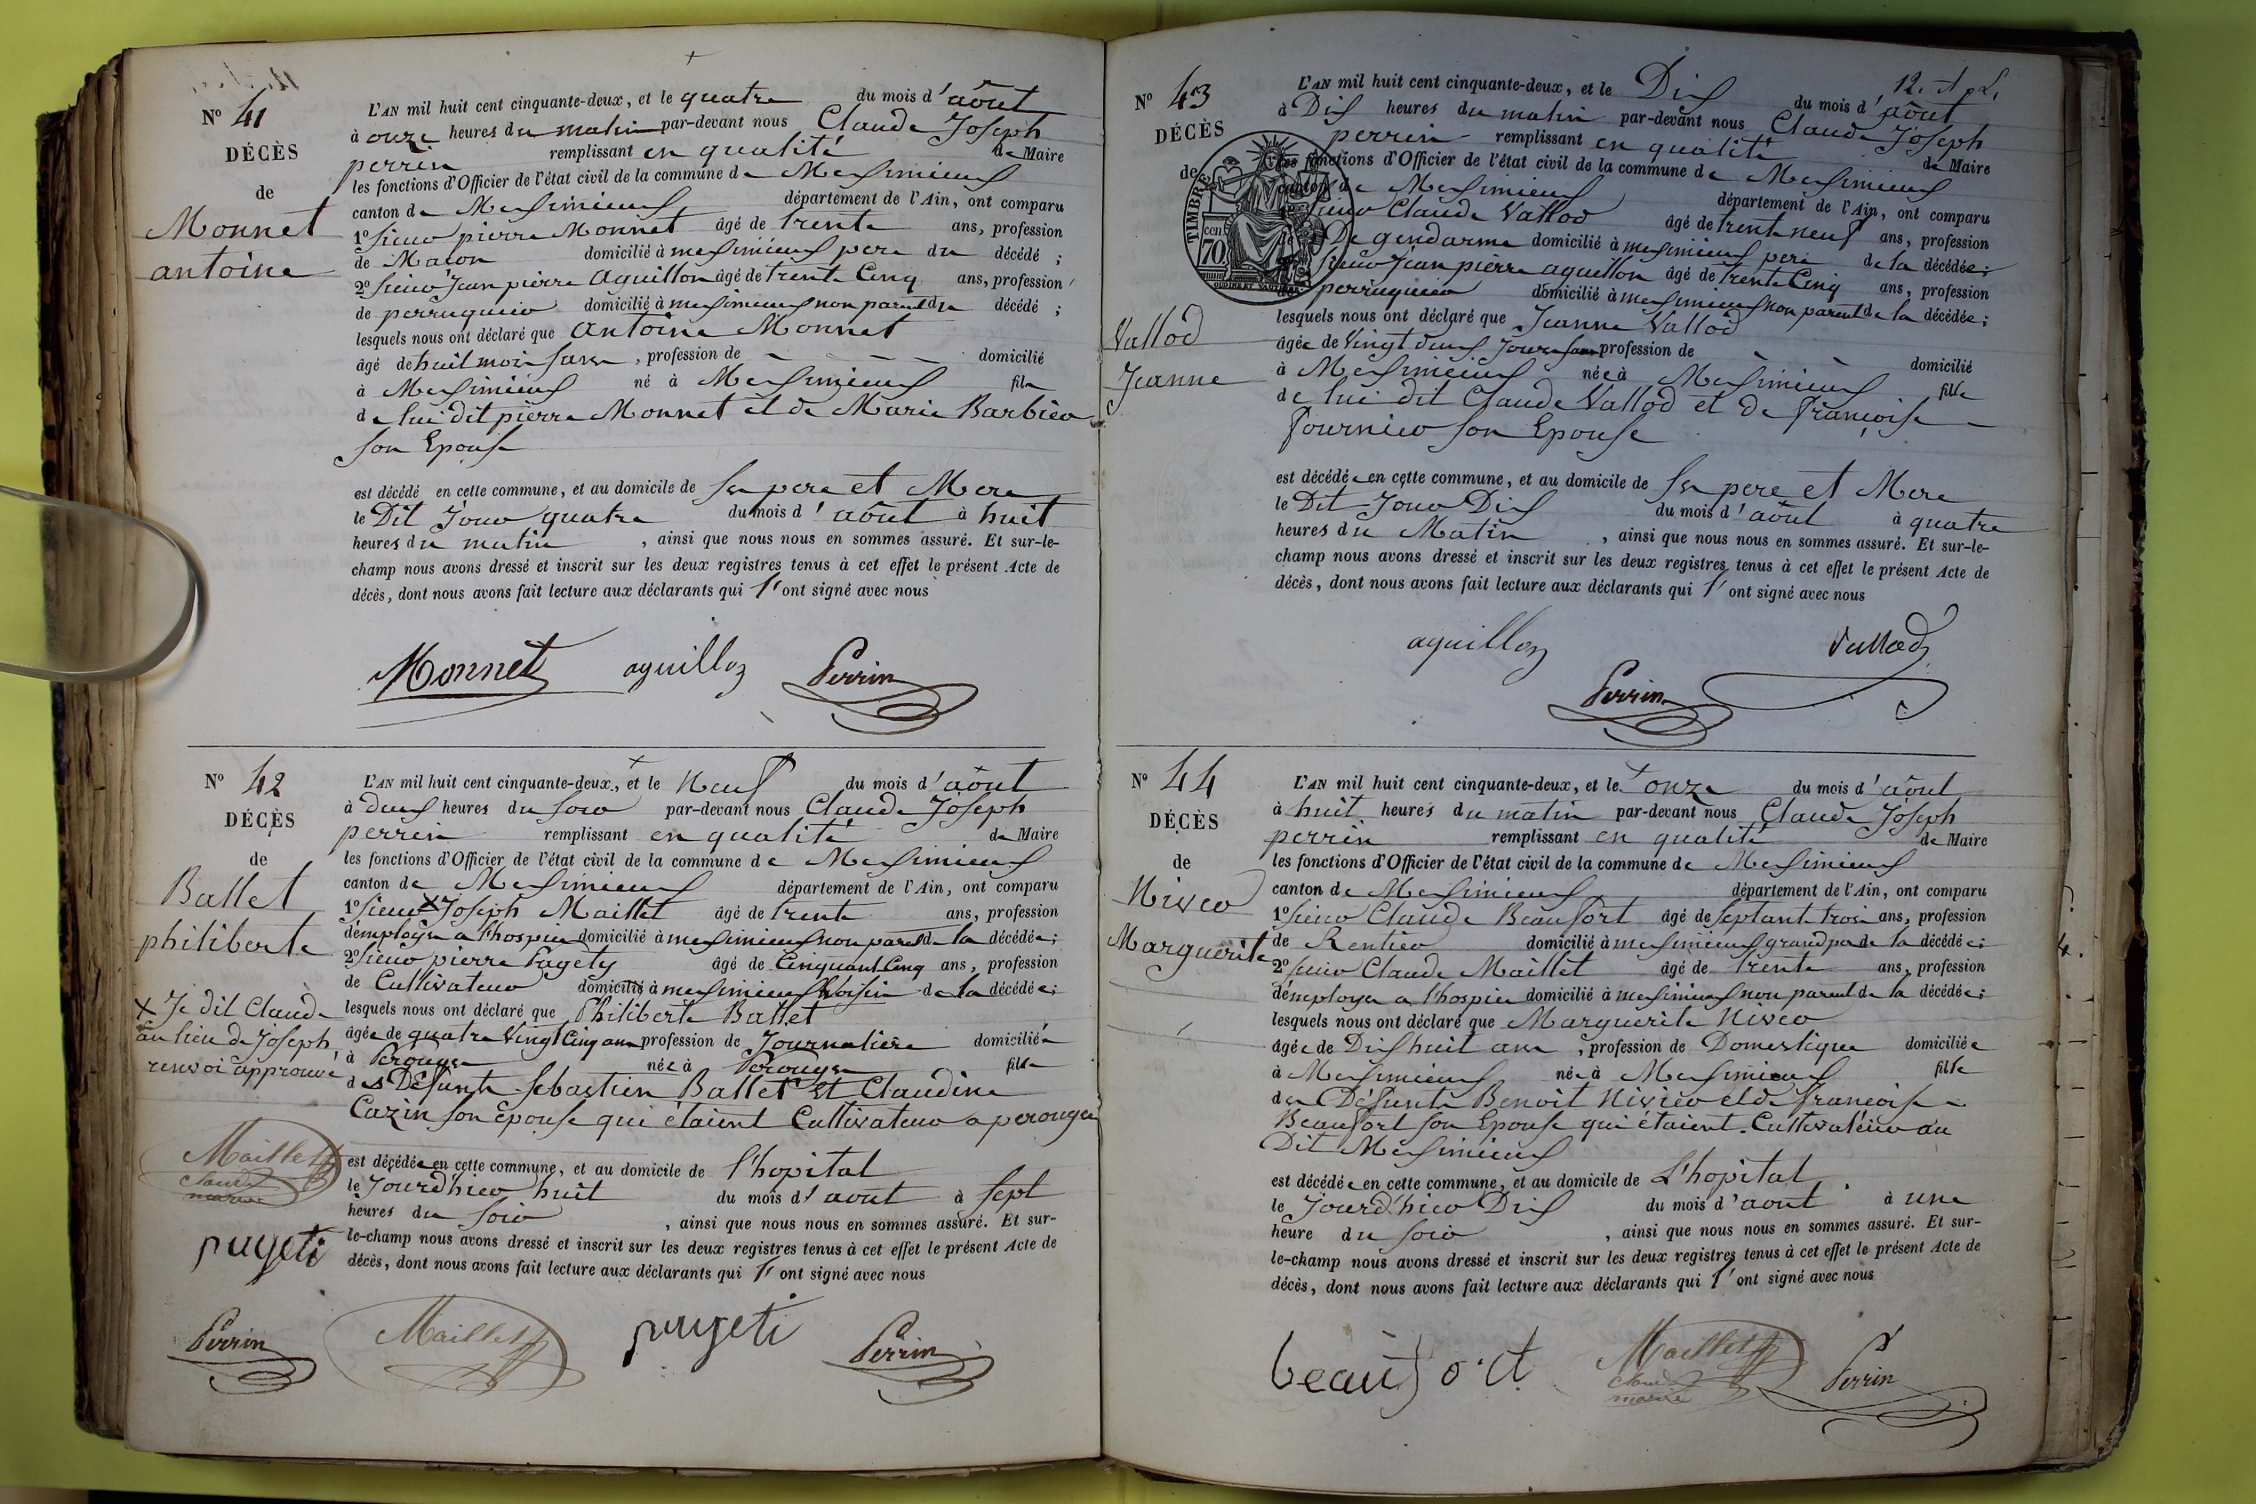 N° 41
DÉCÈS
de
Monnet
antoine
L'AN mil huit cent cinquante-deux, et le quatre du mois d'août
à onze heures du matin par-devant nous Claude Joseph
perrin remplissant en qualité de Maire
les fonctions d'Officier de l'état civil de la commune de Meximieux
canton de Meximieux département de l'Ain, ont comparu
1° sieur pierre Monnet âgé de trente ans, profession
de Maçon domicilié à meximieux pere du décédé ;
2° sieur Jean pierre aguillon âgé de trente Cinq ans, profession
de perruquier domicilié à meximieux non parent du décédé ;
lesquels nous ont déclaré que antoine Monnet
âgé de huit mois sans , profession de - - - - domicilié
à Meximieux né à Meximieux fils
de lui dit pierre Monnet et de Marie Barbier
son Epouse
est décédé en cette commune, et au domicile de ses pere et Mere
le Dit Jour quatre du mois d'août à huit
heures du matin , ainsi que nous nous en sommes assuré. Et sur-le-
champ nous avons dressé et inscrit sur les deux registres tenus à cet effet le présent Acte de
décès, dont nous avons fait lecture aux déclarants qui l'ont signé avec nous
Monnet aguillon Perrin
N° 42
DÉCÈS
de
Ballet
philiberte
X Je dit Claude
au lieu de Joseph
renvoi approuvé
Maillet
Claude
marie
pugeti
Perrin
L'AN mil huit cent cinquante-deux, et le Neuf du mois d'août
à deux heures du soir par-devant nous Claude Joseph
perrin remplissant en qualité de Maire
les fonctions d'Officier de l'état civil de la commune de Meximieux
canton de Meximieux département de l'Ain, ont comparu
1° sieur X Joseph Maillet âgé de trente ans, profession
d'employé a l'hospice domicilié à meximieux non parent de la décédée;
2° sieur pierre Pugety âgé de Cinquant Cinq ans, profession
de Cultivateur domicilié à meximieux Voisin de la décédée;
lesquels nous ont déclaré que Philiberte Ballet
âgée de quatre Vingt Cinq ans profession de Journaliere domiciliée
à Perouges née à Perouges fille
des Defunts Sebastien Ballet et Claudine
Cazin son épouse qui étaient Cultivateur a perouges
est décédée en cette commune, et au domicile de l'hopital
le Jourd'hier huit du mois d'aout à sept
heures du soir , ainsi que nous nous en sommes assuré. Et sur-
le-champ nous avons dressé et inscrit sur les deux registres tenus à cet effet le présent Acte de
décès, dont nous avons fait lecture aux déclarants qui l'ont signé avec nous
Maillet pugeti Perrin
12.
N° 43
DÉCÈS
de
TIMBRE
70 cen
Vallod
Jeanne
L'AN mil huit cent cinquante-deux, et le Dix du mois d'août
à Dix heures du matin par-devant nous Claude Joseph
perrin remplissant en qualité de Maire
les fonctions d'Officier de l'état civil de la commune de Meximieux
canton de Meximieux département de l'Ain, ont comparu
sieur Claude Vallod âgé de trente neuf ans, profession
De gendarme domicilié à meximieux pere de la décédée;
sieur Jean pierre aguillon âgé de trente Cinq ans, profession
de perruquier domicilié à meximieux non parent de la décédée;
lesquels nous ont déclaré que Jeanne Vallod
âgée de Vingt deux Jours sans profession de - - domicilié
à Meximieux née à Meximieux fille
de lui dit Claude Vallod et de françoise
fournier son Epouse
est décédée en cette commune, et au domicile de ses pere et Mere
le Dit Jour Dix du mois d'août à quatre
heures du Matin , ainsi que nous nous en sommes assuré. Et sur-le-
champ nous avons dressé et inscrit sur les deux registres tenus à cet effet le présent Acte de
décès, dont nous avons fait lecture aux déclarants qui l'ont signé avec nous
aguillon Vallod
Perrin
N° 44
DÉCÈS
de
Nivier
Marguerite
L'AN mil huit cent cinquante-deux, et le onze du mois d'août
à huit heures du matin par-devant nous Claude Joseph
perrin remplissant en qualité de Maire
les fonctions d'Officier de l'état civil de la commune de Meximieux
canton de Meximieux département de l'Ain, ont comparu
1° sieur Claude Beaufort âgé de septant trois ans, profession
de Rentier domicilié à meximieux grand pere de la décédée;
2° sieur Claude Maillet âgé de trente ans, profession
d'employé a l'hospice domicilié à meximieux non parent de la décédée;
lesquels nous ont déclaré que Marguerite Nivier
âgée de Dix huit ans , profession de Domestique domiciliée
à Meximieux née à Meximieux fille
des Défunts Benoit Nivier et de francoise
Beaufort son Epouse qui étaient Cultivateur au
Dit Meximieux
est décédée en cette commune, et au domicile de L'hopital
le Jourd'hier Dix du mois d'aout à une
heure du soir , ainsi que nous nous en sommes assuré. Et sur-
le-champ nous avons dressé et inscrit sur les deux registres tenus à cet effet le présent Acte de
décès, dont nous avons fait lecture aux déclarants qui l'ont signé avec nous
beaufort Maillet Perrin
Claude
marie